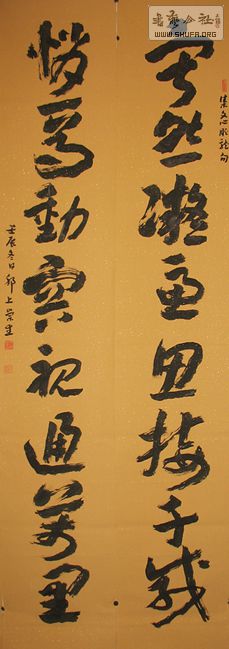 書法公社
WWW.SHUFA.ORG
集文心雕龍句
寂然凝慮思接千載
悄焉動容視通萬里
壬辰冬日